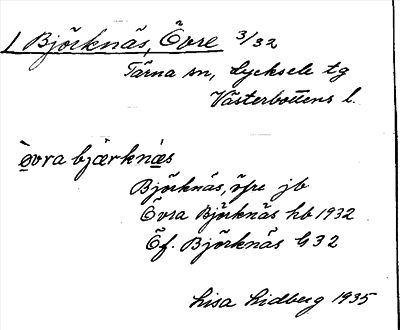 1 Björknäs, Övre 3/32
Tärna sn, Lycksele tg
Västerbottens l.
òvra bjærknæs
Björknäs, öfre jb
Övra Björknäs hb 1932
Öf. Björknäs G32
Lisa Lidberg 1935